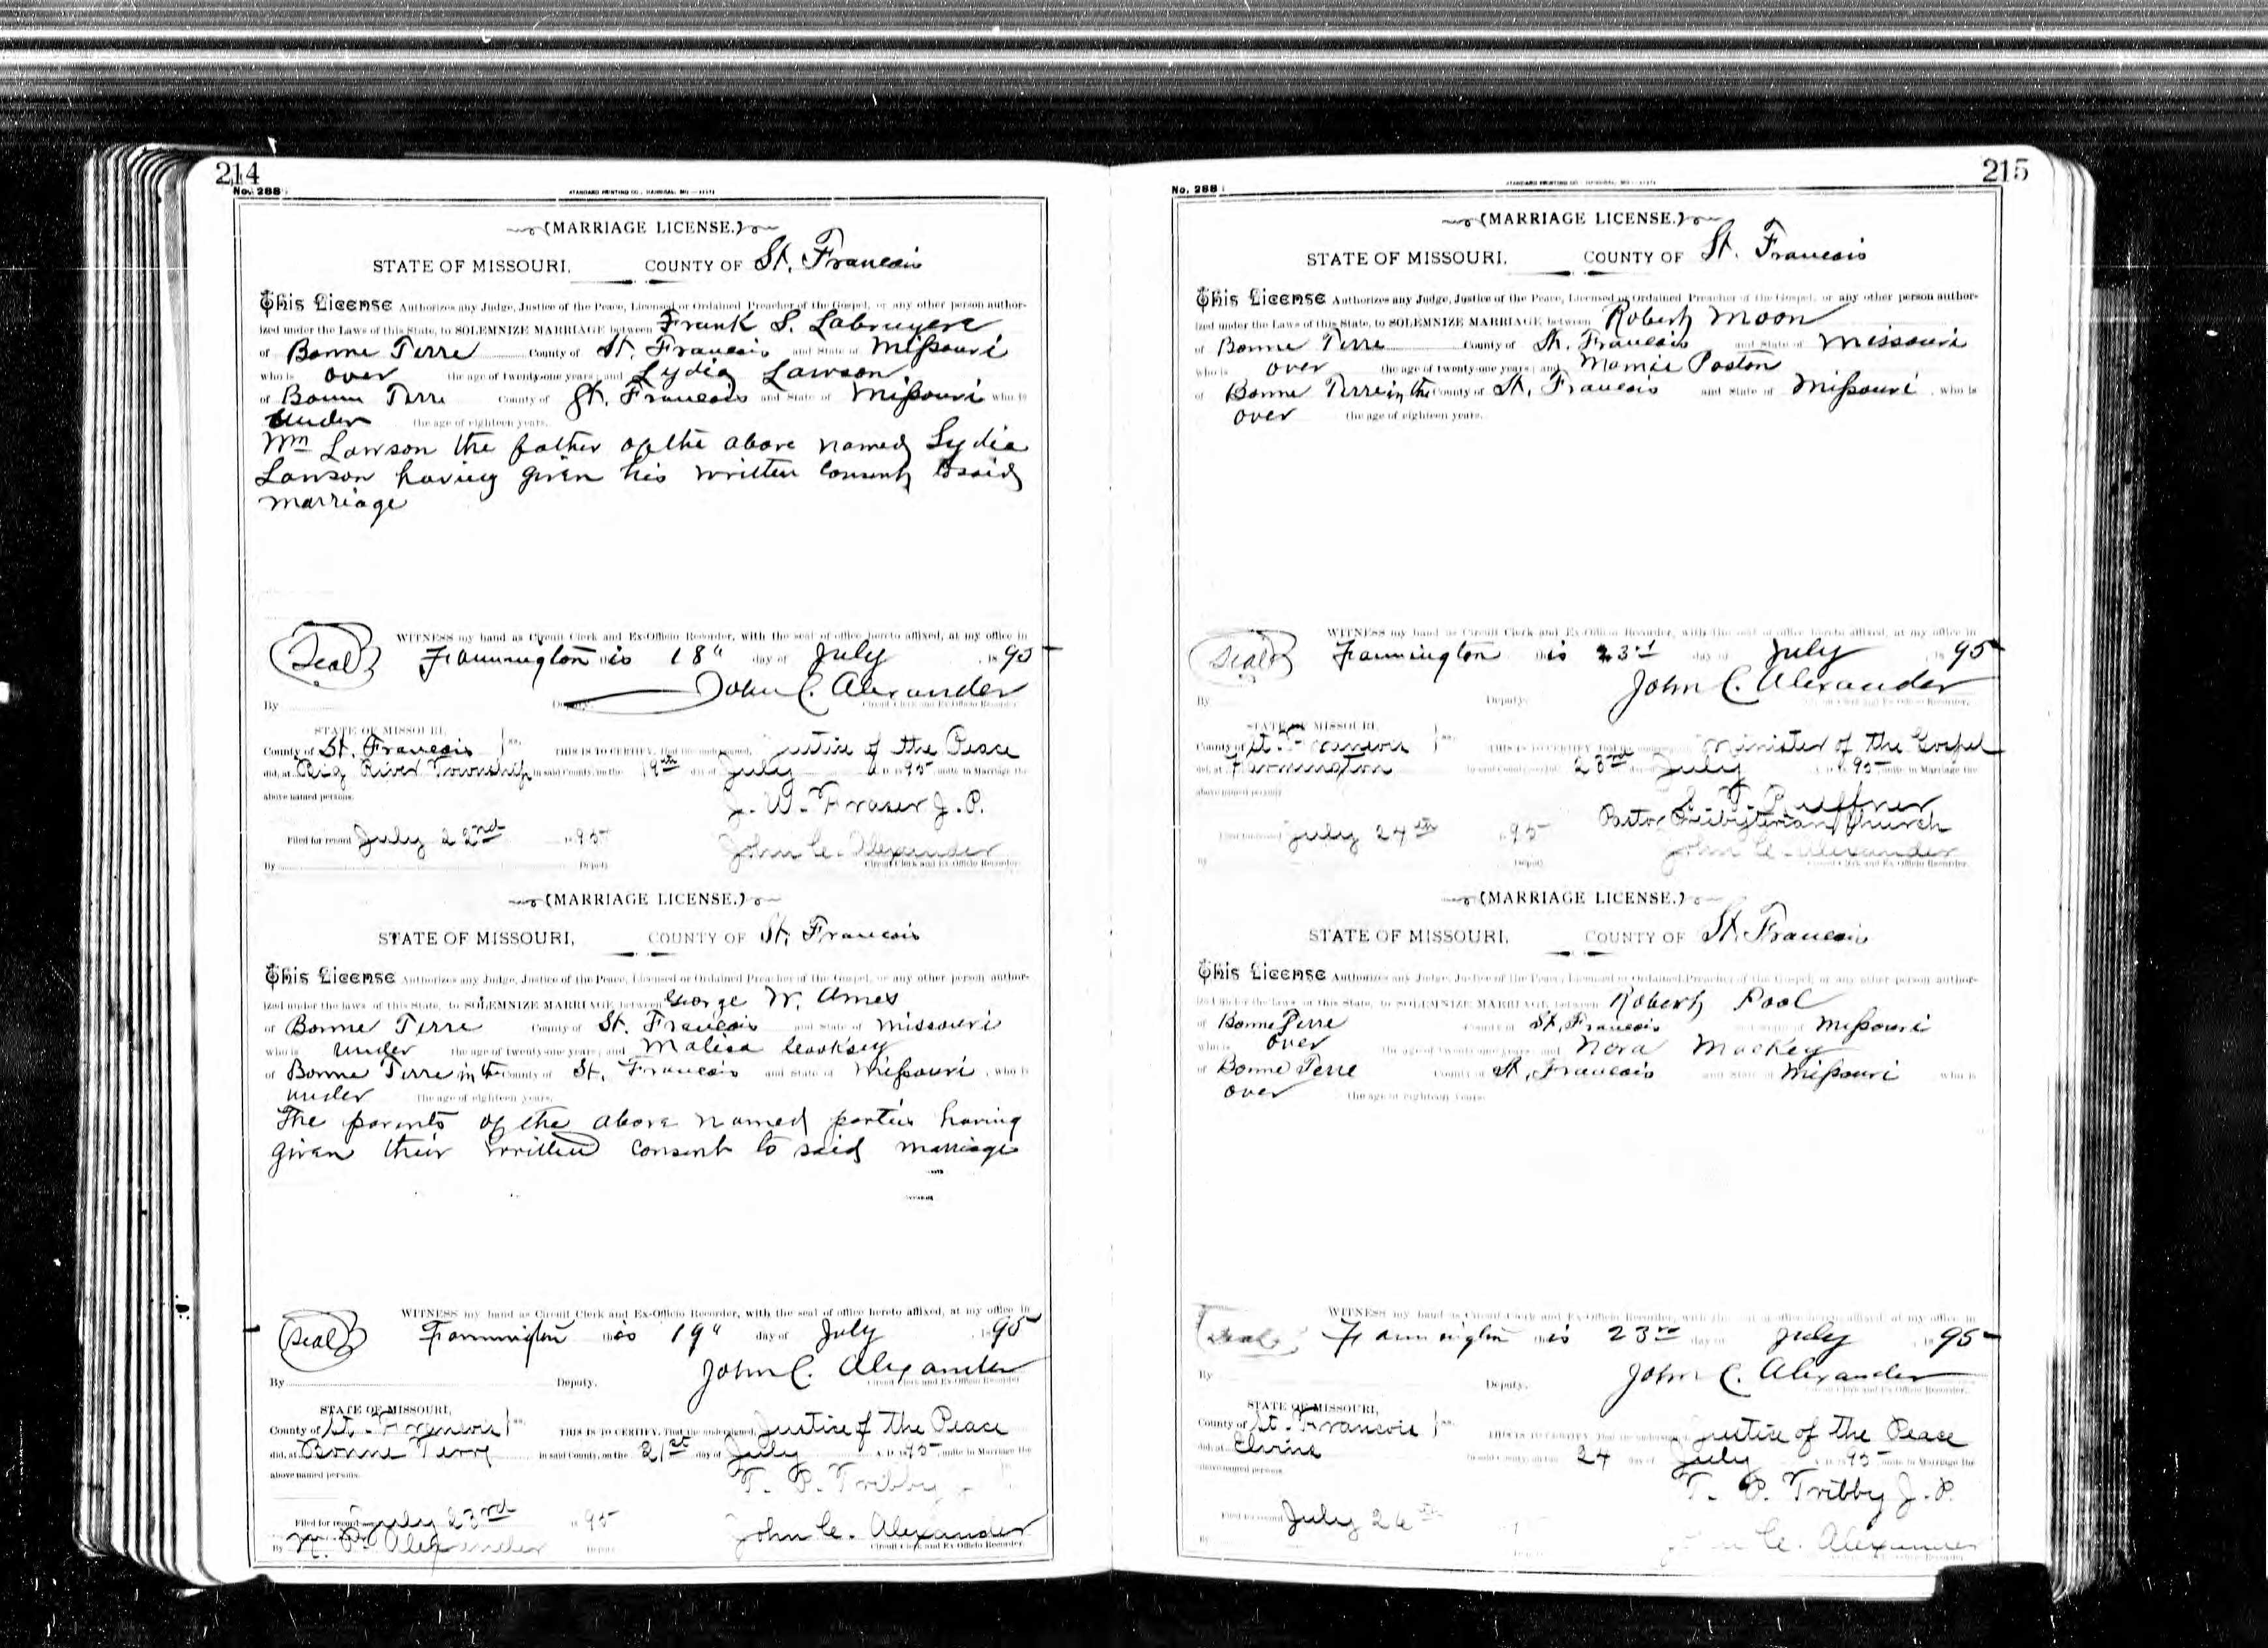 214
No. 288
STANDARD PRINTING CO., HANNIBAL, MO
(MARRIAGE LICENSE.)
STATE OF MISSOURI, COUNTY OF St. Francois
This License Authorizes any Judge, Justice of the Peace, Licensed or Ordained Preacher of the Gospel, or any other person author-
ized under the Laws of this State, to SOLEMNIZE MARRIAGE between Frank S. Labruyere
of Bonne Terre County of St. Francois and State of Missouri
who is over the age of twenty-one years; and Lydia Lawson
of Bonne Terre County of St. Francois and State of Missouri who is
under the age of eighteen years.
Wm Lawson the father of the above named Lydia
Lawson having given his written consent to said
marriage
WITNESS my hand as Circuit Clerk and Ex-Officio Recorder, with the seal of office hereto affixed, at my office in
Seal Farmington this 18" day of July 1895
John C. Alexander
By Deputy. Circuit Clerk and Ex-Officio Recorder.
STATE OF MISSOURI,
County of St. Francois ss. THIS IS TO CERTIFY, That the undersigned, Justice of the Peace
did, at Big River Township in said County, on the 19th day of July A.D. 1895, unite in Marriage the
above named persons.
J. W. Fraser J.P.
Filed for record July 22nd 1895 John C. Alexander
By Deputy Circuit Clerk and Ex-Officio Recorder.
(MARRIAGE LICENSE.)
STATE OF MISSOURI, COUNTY OF St. Francois
This License Authorizes any Judge, Justice of the Peace, Licensed or Ordained Preacher of the Gospel, or any other person author-
ized under the laws of this State, to SOLEMNIZE MARRIAGE between George W. Ames
of Bonne Terre County of St. Francois and State of Missouri
who is under the age of twenty-one years; and Malisa Cooksey
of Bonne Terre in the County of St. Francois and State of Missouri, who is
under the age of eighteen years.
The parents of the above named parties having
given their written consent to said marriage
WITNESS my hand as Circuit Clerk and Ex-Officio Recorder, with the seal of office hereto affixed, at my office in
Seal Farmington this 19" day of July 1895
John C. Alexander
By Deputy. Circuit Clerk and Ex-Officio Recorder.
STATE OF MISSOURI,
County of St. Francois ss. THIS IS TO CERTIFY, That the undersigned, Justice of the Peace
did, at Bonne Terre in said County, on the 21st day of July A.D. 1895, unite in Marriage the
above named persons.
T. P. Tribby
Filed for record July 23rd 1895 John C. Alexander
By Alexander Deputy Circuit Clerk and Ex-Officio Recorder.
215
No. 288
STANDARD PRINTING CO., HANNIBAL, MO
(MARRIAGE LICENSE.)
STATE OF MISSOURI, COUNTY OF St. Francois
This License Authorizes any Judge, Justice of the Peace, Licensed or Ordained Preacher of the Gospel, or any other person author-
ized under the Laws of this State, to SOLEMNIZE MARRIAGE between Robert Moon
of Bonne Terre County of St. Francois and State of Missouri
who is over the age of twenty-one years; and Mamie Poston
of Bonne Terre in the County of St. Francois and State of Missouri, who is
over the age of eighteen years.
WITNESS my hand as Circuit Clerk and Ex-Officio Recorder, with the seal of office hereto affixed, at my office in
Seal Farmington this 23rd day of July 1895
John C. Alexander
By Deputy. Circuit Clerk and Ex-Officio Recorder.
STATE OF MISSOURI,
County of St. Francois ss. THIS IS TO CERTIFY, That the undersigned, Minister of the Gospel
did, at Farmington in said County, on the 23rd day of July A.D. 1895, unite in Marriage the
above named persons.
Ruffner
Pastor Presbyterian Church
Filed for record July 24th 1895 John C. Alexander
By Deputy. Circuit Clerk and Ex-Officio Recorder.
(MARRIAGE LICENSE.)
STATE OF MISSOURI, COUNTY OF St. Francois
This License Authorizes any Judge, Justice of the Peace, Licensed or Ordained Preacher of the Gospel, or any other person author-
ized under the laws of this State, to SOLEMNIZE MARRIAGE between Robert Pool
of Bonne Terre County of St. Francois and State of Missouri
who is over the age of twenty-one years; and Nora Mackey
of Bonne Terre County of St. Francois and State of Missouri who is
over the age of eighteen years.
WITNESS my hand as Circuit Clerk and Ex-Officio Recorder, with the seal of office hereto affixed, at my office in
Seal Farmington this 23rd day of July 1895
John C. Alexander
By Deputy. Circuit Clerk and Ex-Officio Recorder.
STATE OF MISSOURI,
County of St. Francois ss. THIS IS TO CERTIFY, That the undersigned, Justice of the Peace
did, at Elvins in said County, on the 24 day of July A.D. 1895, unite in Marriage the
above named persons.
T. P. Tribby J.P.
Filed for record July 26th
By John C. Alexander